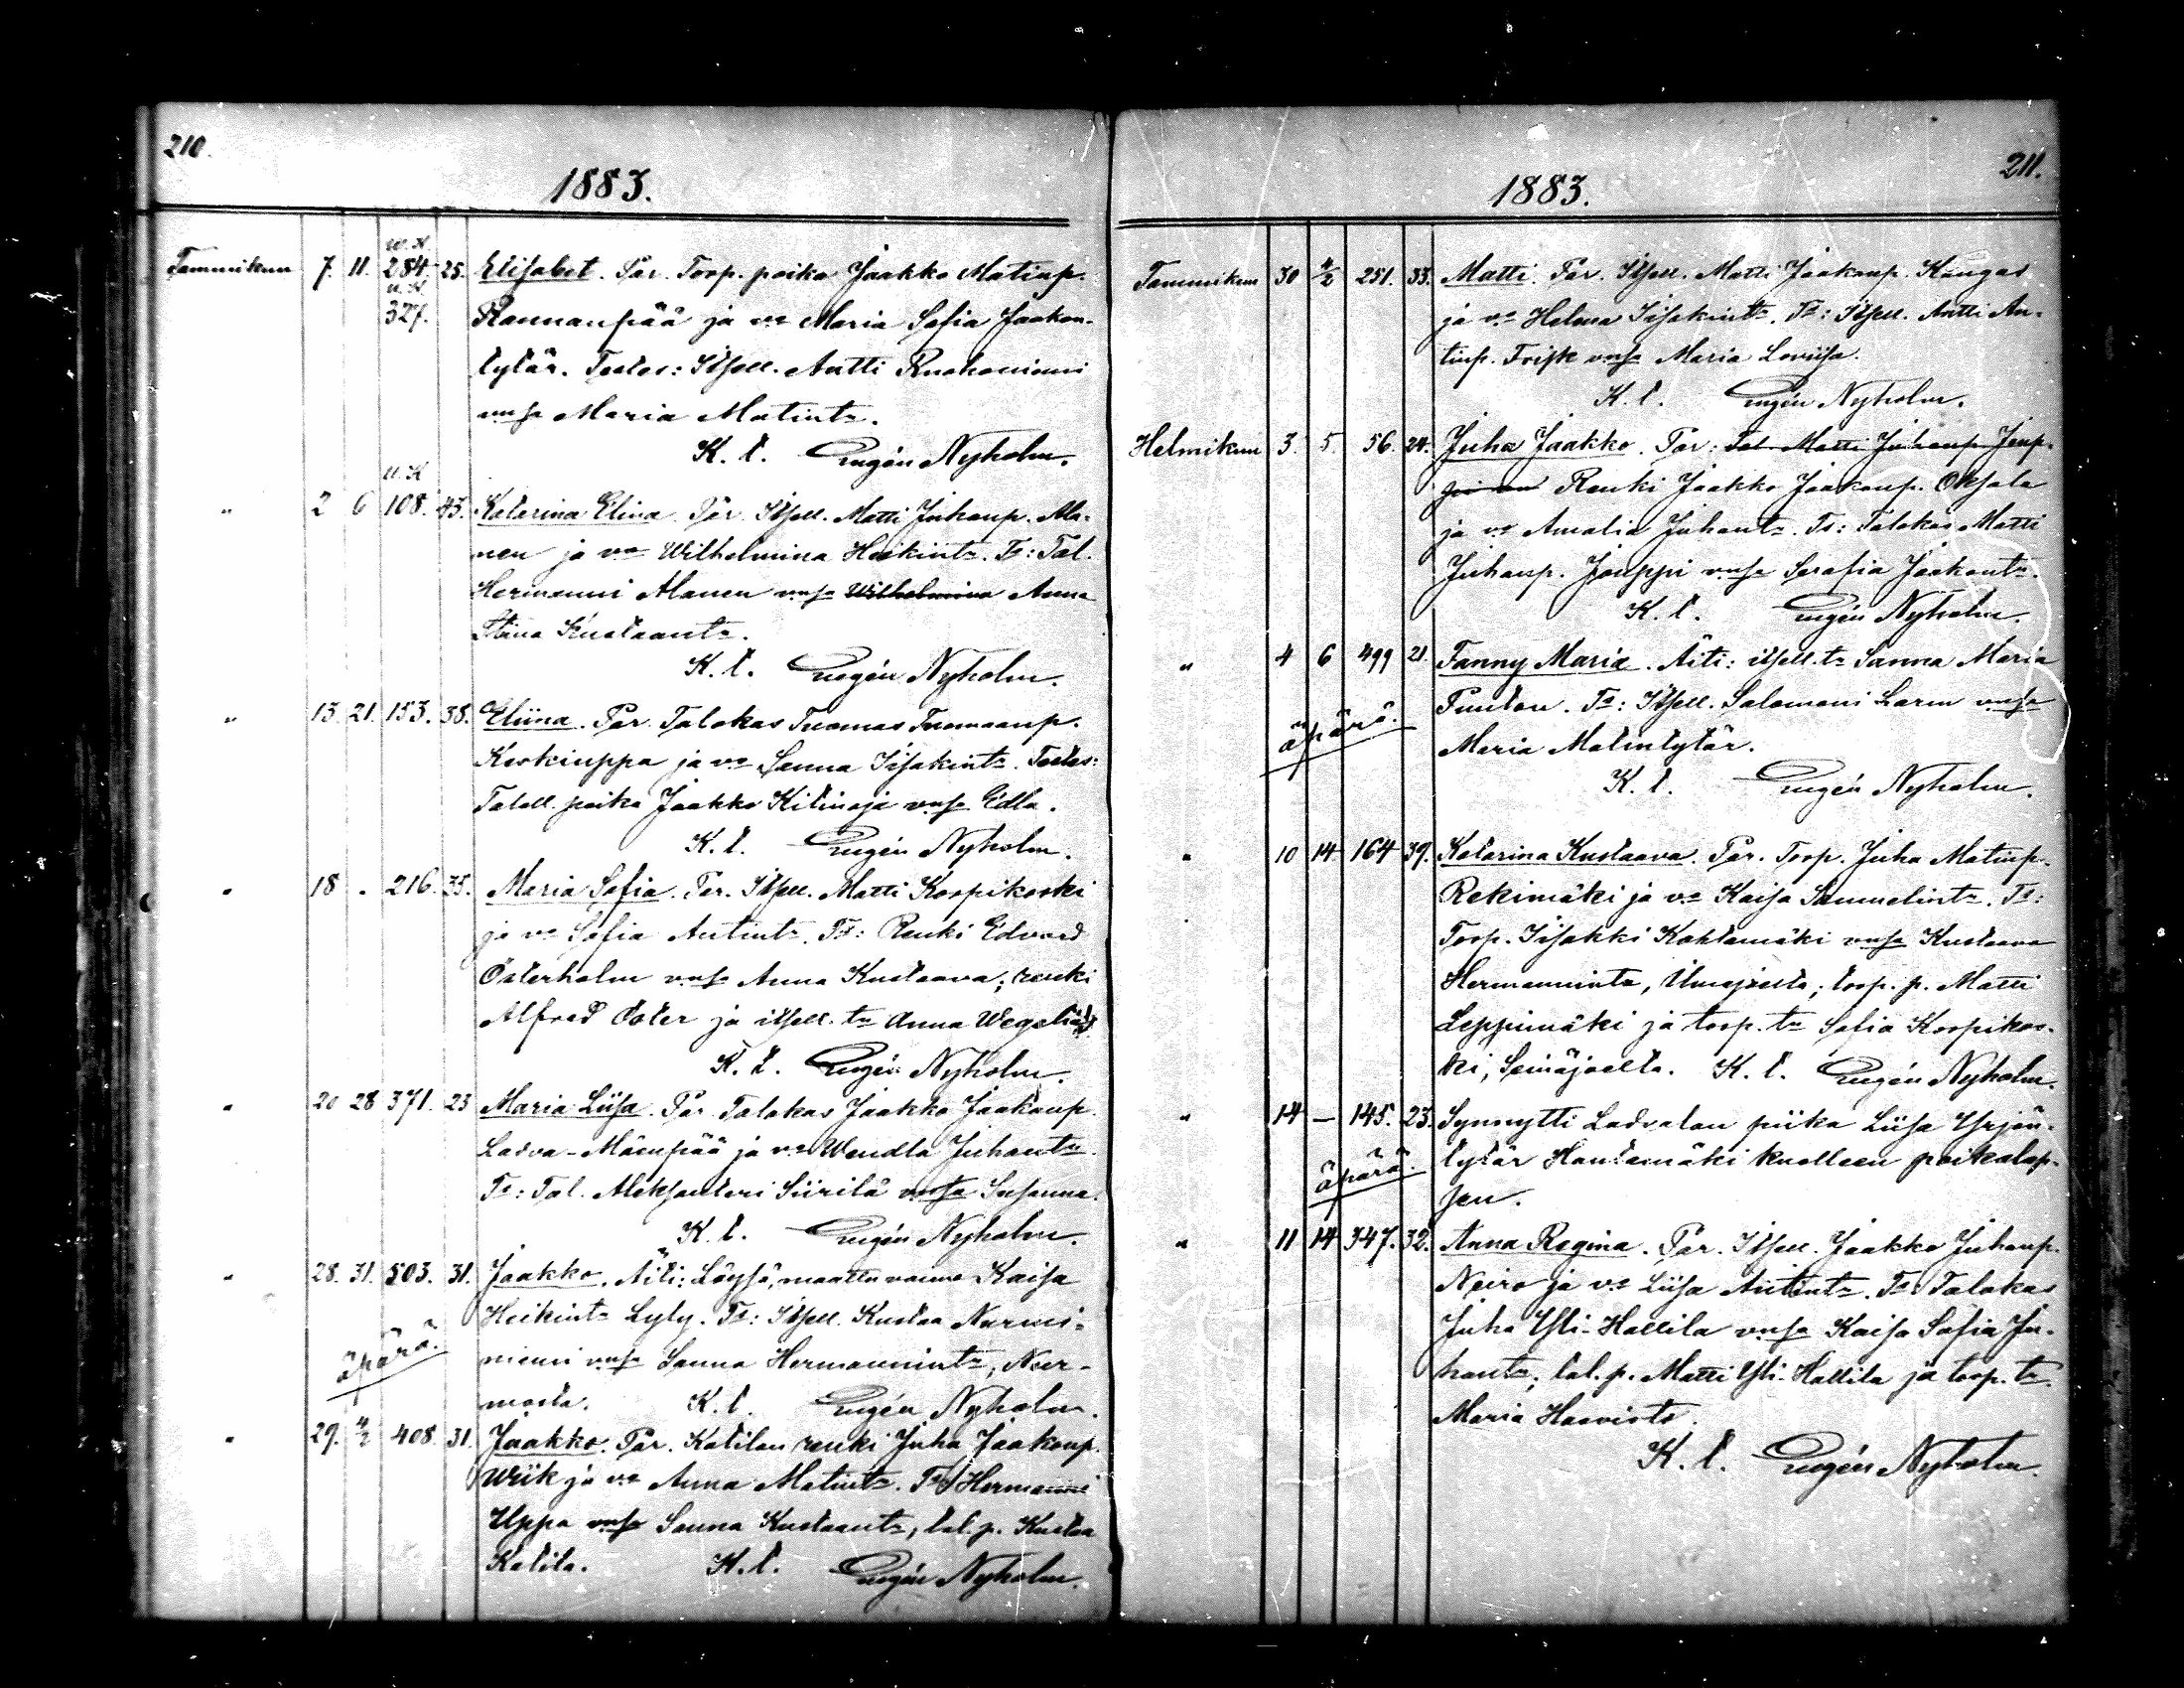 210.
1883.
w. K.
Tammikun 7. 11. 284. 25. Elisabet. Par. Torp. poika Jaakko Matinp.
u. K.
327. Rannanpää ja vo Maria Sofia Jaakon-
tytär. Testes: Itsell. Antti Ruohoniemi
vmsa Maria Matintr.
K. t. Eugén Nyholm.
u. K
" 2 6 108. 43. Katarina Elina. Par. Itsell. Matti Juhanp. Ala-
nen ja vo Wilhelmina Heikintr. Ts: Tal.
Hermanni Alanen vmsa Wilhelmina Anna
Stina Kustaantr.
K. t. Eugén Nyholm.
" 13. 21. 153. 38. Eliina. Par. Talokas Tuomas Tuomaanp.
Koskiuppa ja vo Sanna Iisakintr. Testes:
Talell. poika Jaakko Kitinoja vmsa Edla.
K. t. Eugén Nyholm.
" 18 " 216. 35. Maria Sofia. Par. Itsell. Matti Korpikoski
ja vo Sofia Antintr. Ts: Renki Edvard
Österholm vmsa Anna Kustaava; renki
Alfred Öster ja itsell. tr Anna Wegelius
K. t. Eugén Nyholm.
" 20 28 371. 23 Maria Liisa. Par. Talokas Jaakko Jaakonp.
Ladva-Mäenpää ja vo Wendla Juhantr.
Ts: Tal. Aleksanteri Siirilä vmsa Susanna.
K. t. Eugén Nyholm.
" 28. 31. 503. 31. Jaakko. Äiti: Löysä, maattu vaimo Kaisa
Heikintr Lyly. Ts: Itsell. Kustaa Nurmi-
äpärä. niemi vmsa Sanna Hermannintr, Nur-
mosta. K. t. Eugén Nyholm.
" 29. 4/2 408. 31. Jaakko. Par. Katilan renki Juha Jaakonp.
Wiik ja vo Anna Matintr. Ts: Hermanni
Uppa vmsa Sanna Kustaantr, tal. p. Kustaa
Katila. K. t. Eugén Nyholm.
211.
1883.
Tammikun 30 4/2 251. 33. Matti. Par. Itsell. Matti Jaakonp. Kangas
ja vo Helena Iisakintr. Ts: Itsell. Antti An-
tinp. Frisk vmsa Maria Loviisa.
K. t. Eugén Nyholm.
Helmikun 3. 5. 56. 24. Juha Jaakko. Par: Tal. Matti Juhanp. Joup-
pi ja Renki Jaakko Jaakonp. Oksala
ja vo Amalia Juhantr. Ts: Talokas Matti
Juhanp. Jouppi vmsa Serafia Jaakontr.
K. t. Eugén Nyholm.
" 4 6 499 21. Fanny Maria. Äiti: itsell. tr Sanna Maria
äpärä. Puutou. Ts: Itsell. Salomoni Larm vmsa
Maria Matintytär.
K. t. Eugén Nyholm.
" 10 14 164 39. Katarina Kustaava. Par. Torp. Juha Matinp.
Rekimäki ja vo Kaisa Samuelintr. Ts:
Torp. Iisakki Kohtamäki vmsa Kustaava
Hermannintr, Ilmajoelta; torp. p. Matti
Leppimäki ja torp. tr Sofia Korpikos-
ki, Seinäjoelta. K. t. Eugén Nyholm.
" 14 — 145. 23. Synnytti Ladvalan piika Liisa Yrjän-
äpärä. tytär Hautamäki kuolleen poikalap-
sen.
" 11 14 347. 32. Anna Regina. Par. Itsell. Jaakko Juhanp.
Neiro ja vo Liisa Antintr. Ts: Talokas
Juha Yli-Hallila vmsa Kaisa Sofia Ju-
hantr; tal. p. Matti Yli-Hallila ja torp. tr
Maria Haavisto.
K. t. Eugén Nyholm.